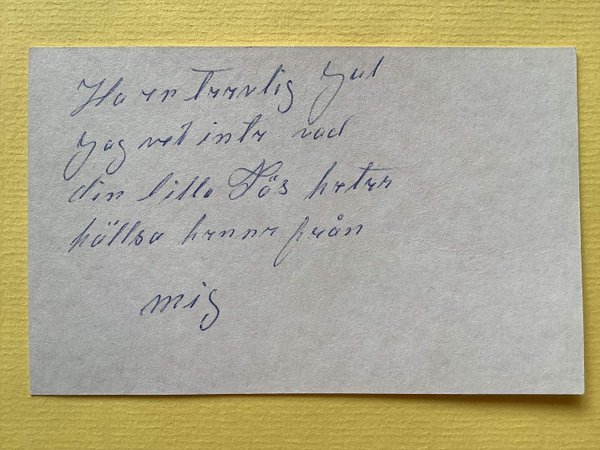 Ha en trevlig Jul
Jag vet inte vad
din lilla Tös heter
hällsa henne från
mig